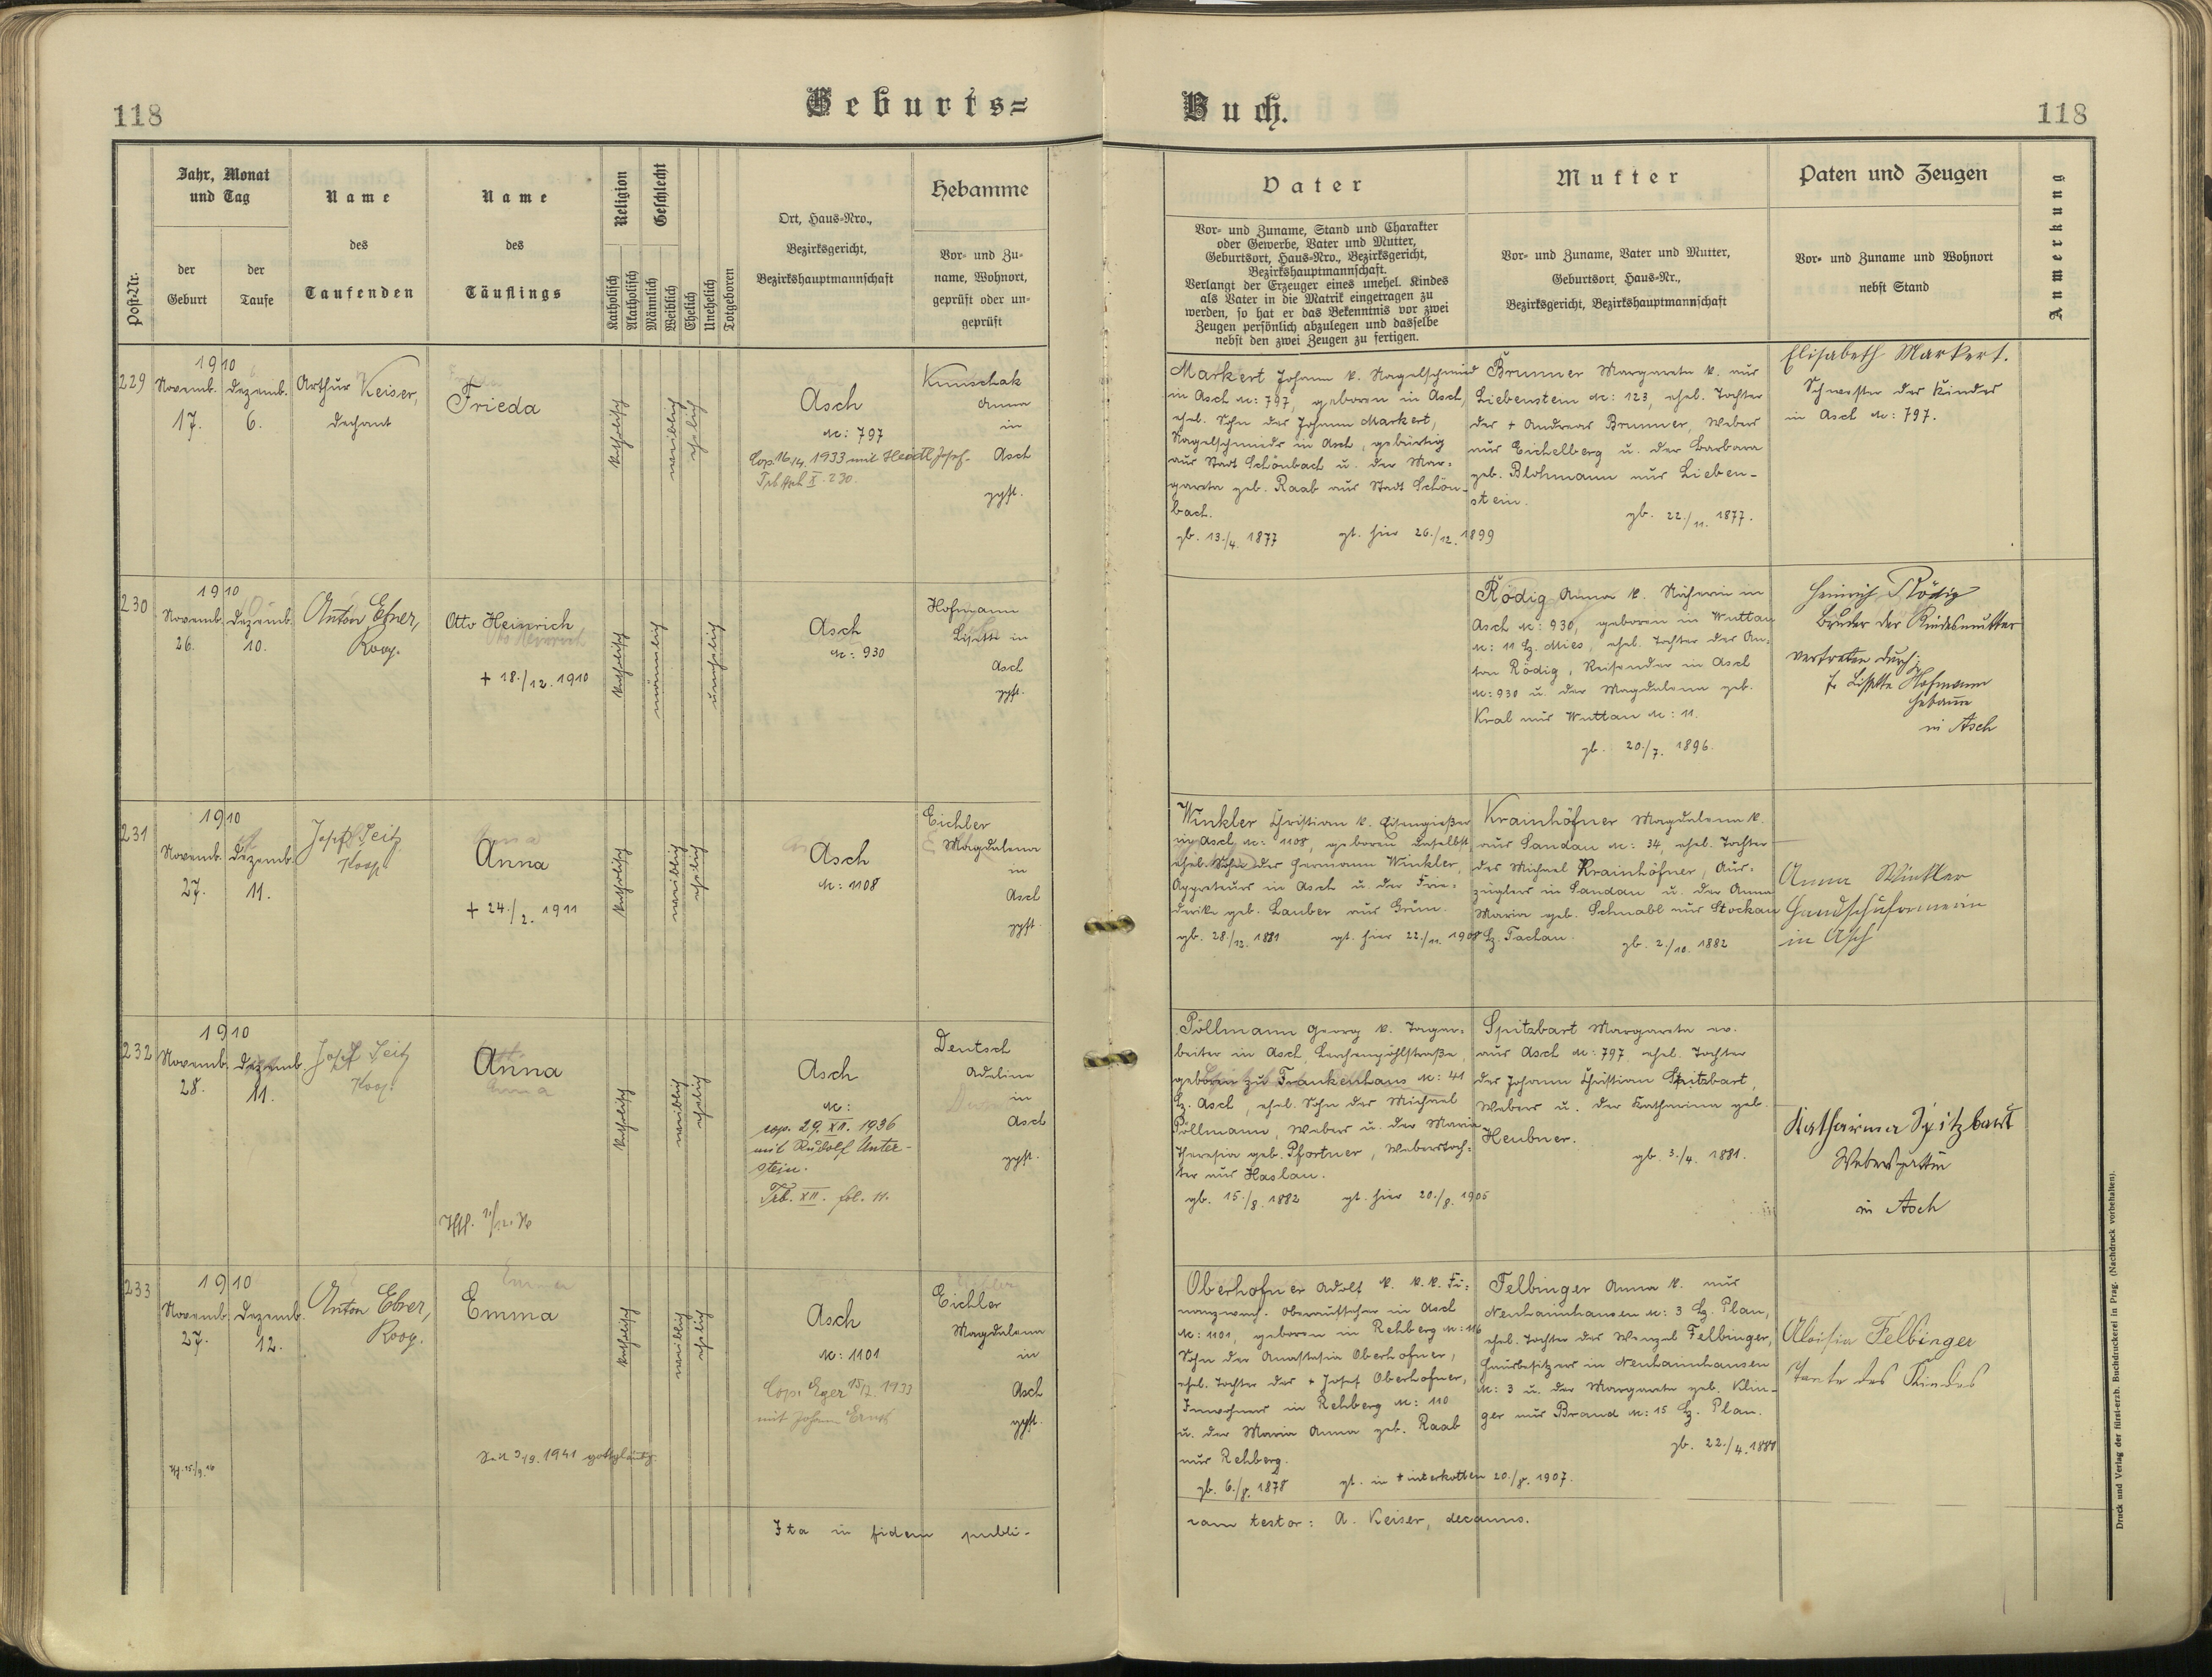 118
Geburts=
Buch.
118
Post-Nr.
Jahr, Monat
und Tag
der
Geburt
der
Taufe
Name
des
Taufenden
Name
des
Täuflings
Religion
Katholisch
Akatholisch
Geschlecht
Männlich
Weiblich
Ehelich
Unehelich
Totgeboren
Ort, Haus-Nro.,
Bezirksgericht,
Bezirkshauptmannschaft
Hebamme
Vor- und Zu-
name, Wohnort,
geprüft oder un-
geprüft
Vater
Vor- und Zuname, Stand und Charakter
oder Gewerbe, Vater und Mutter,
Geburtsort, Haus-Nro., Bezirksgericht,
Bezirkshauptmannschaft.
Verlangt der Erzeuger eines unehel. Kindes
als Vater in die Matrik eingetragen zu
werden, so hat er das Bekenntnis vor zwei
Zeugen persönlich abzulegen und dasselbe
nebst den zwei Zeugen zu fertigen.
Mutter
Vor- und Zuname, Vater und Mutter,
Geburtsort, Haus-Nr.,
Bezirksgericht, Bezirkshauptmannschaft
Paten und Zeugen
Vor- und Zuname und Wohnort
nebst Stand
Anmerkung
229
1910
Novemb.
17.
Dezemb.
6.
Arthur Keiser,
Dechant
Frieda
katholisch
weiblich
ehelich
Asch
N: 797
Cop. 16/4. 1933 mit
X. 230.
Anna
in
Asch
gpft.
Markert Johann k. Nagelschmied
in Asch N: 797, geboren in Asch,
ehel. Sohn des Johann Markert,
Nagelschmieds in Asch, gebürtig
aus Stadt Schönbach u. der Mar-
gareta geb. Raab aus Stadt Schön-
bach.
gb. 13./4. 1877 gt. hier 26./12. 1899
Brunner Margareta k. aus
Liebenstein N: 123, ehel. Tochter
des + Andreas Brunner, Weber
aus Eichelberg u. der Barbara
geb. Blohmann aus Lieben-
stein.
gb. 22./11. 1877.
Elisabeth Markert.
Schwester des Kindes
in Asch N: 797.
230
1910
Novemb.
26.
Dezemb.
10.
Anton Ebner,
Koop.
Otto Heinrich
+ 18./12. 1910
katholisch
männlich
unehelich
Asch
N: 930
Hofmann
Lisette in
Asch
gpft.
Rödig Anna k. Näherin in
Asch N: 930, geboren in Wuttau
N: 11 Bz. Mies, ehel. Tochter des An-
ton Rödig, Reisender in Asch
N: 930 u. der Magdalena geb.
Kral aus Wuttau N: 11.
gb. 20./7. 1896.
Heinrich Rödig
Bruder der Kindesmutter
vertreten durch:
Fr. Lisette Hofmann
Hebamme
in Asch
231
1910
Novemb.
27.
Dezemb.
11.
Josef Seitz
Koop.
Anna
+ 24./2. 1911
katholisch
weiblich
ehelich
Asch
N: 1108
Eichler
Magdalena
in
Asch
gpft.
Winkler Christian k. Eisengießer
in Asch N: 1108, geboren daselbst,
ehel. Sohn des Hermann Winkler,
Appreteurs in Asch u. der Frie-
derike geb. Lauber aus Grün.
gb. 28./12. 1881 gt. hier 22./11. 1908
Krainhöfner Magdalena k.
aus Sandau N: 34, ehel. Tochter
des Michael Krainhöfner, Aus-
züglers in Sandau u. der Anna
Maria geb. Schnabl aus Stockau
Bz. Tachau. gb. 2./10. 1882
Anna Winkler
in Asch
232
1910
Novemb.
28.
Dezemb.
11.
Josef Seitz
Koop.
Anna
katholisch
weiblich
ehelich
Asch
N:
cop. 29. XII. 1936
mit Rudolf Unter-
stein.
Trb. XII. fol. 11.
Deutsch
Adeline
in
Asch
gpft.
Pöllmann Georg k. Tagar-
beiter in Asch,
geboren zu Frankenhaus N: 41
Bz. Asch, ehel. Sohn des Michael
Pöllmann, Webers u. der Maria
Theresia geb. Pfortner, Weberstoch-
ter aus Haslau.
gb. 15./8. 1882 gt. hier 20./8. 1905
Spitzbart Margareta ev.
aus Asch N: 797, ehel. Tochter
des Johann Christian Spitzbart,
Webers u. der Katharina geb.
Heubner.
gb. 3./4. 1881.
Katharina Spitzbart
Webersgattin
in Asch
233
1910
Novemb.
27.
Dezemb.
12.
Anton Ebner,
Koop.
Emma
katholisch
weiblich
ehelich
Asch
N: 1101
Cop. Eger 15/7. 1933
mit Johann Ernst
Eichler
Magdalena
in
Asch
gpft.
1941 gottgläubig.
Oberhofner Adolf k. k. k. Fi-
nanzwach-Oberaufseher in Asch
N: 1101, geboren in Rehberg N: 116
Sohn der Anastasia Oberhofner,
ehel. Tochter des + Josef Oberhofner,
Inwohners in Rehberg N: 110
u. der Maria Anna geb. Raab
aus Rehberg.
gb. 6./8. 1878 gt. in 20./8. 1907.
Felbinger Anna k. aus
Neuhainhausen N: 3 Bz. Plan,
ehel. Tochter des Wenzel Felbinger,
Hausbesitzers in Neuhainhausen
N: 3 u. der Margareta geb. Klin-
ger aus Brand N: 15 Bz. Plan.
gb. 22./4. 1881
Aloisia Felbinger
Tante des Kindes
Ita in fidem publi-
cam testor: A. Keiser, decanus.
Druck und Verlag der fürst-erzb. Buchdruckerei in Prag. (Nachdruck vorbehalten).